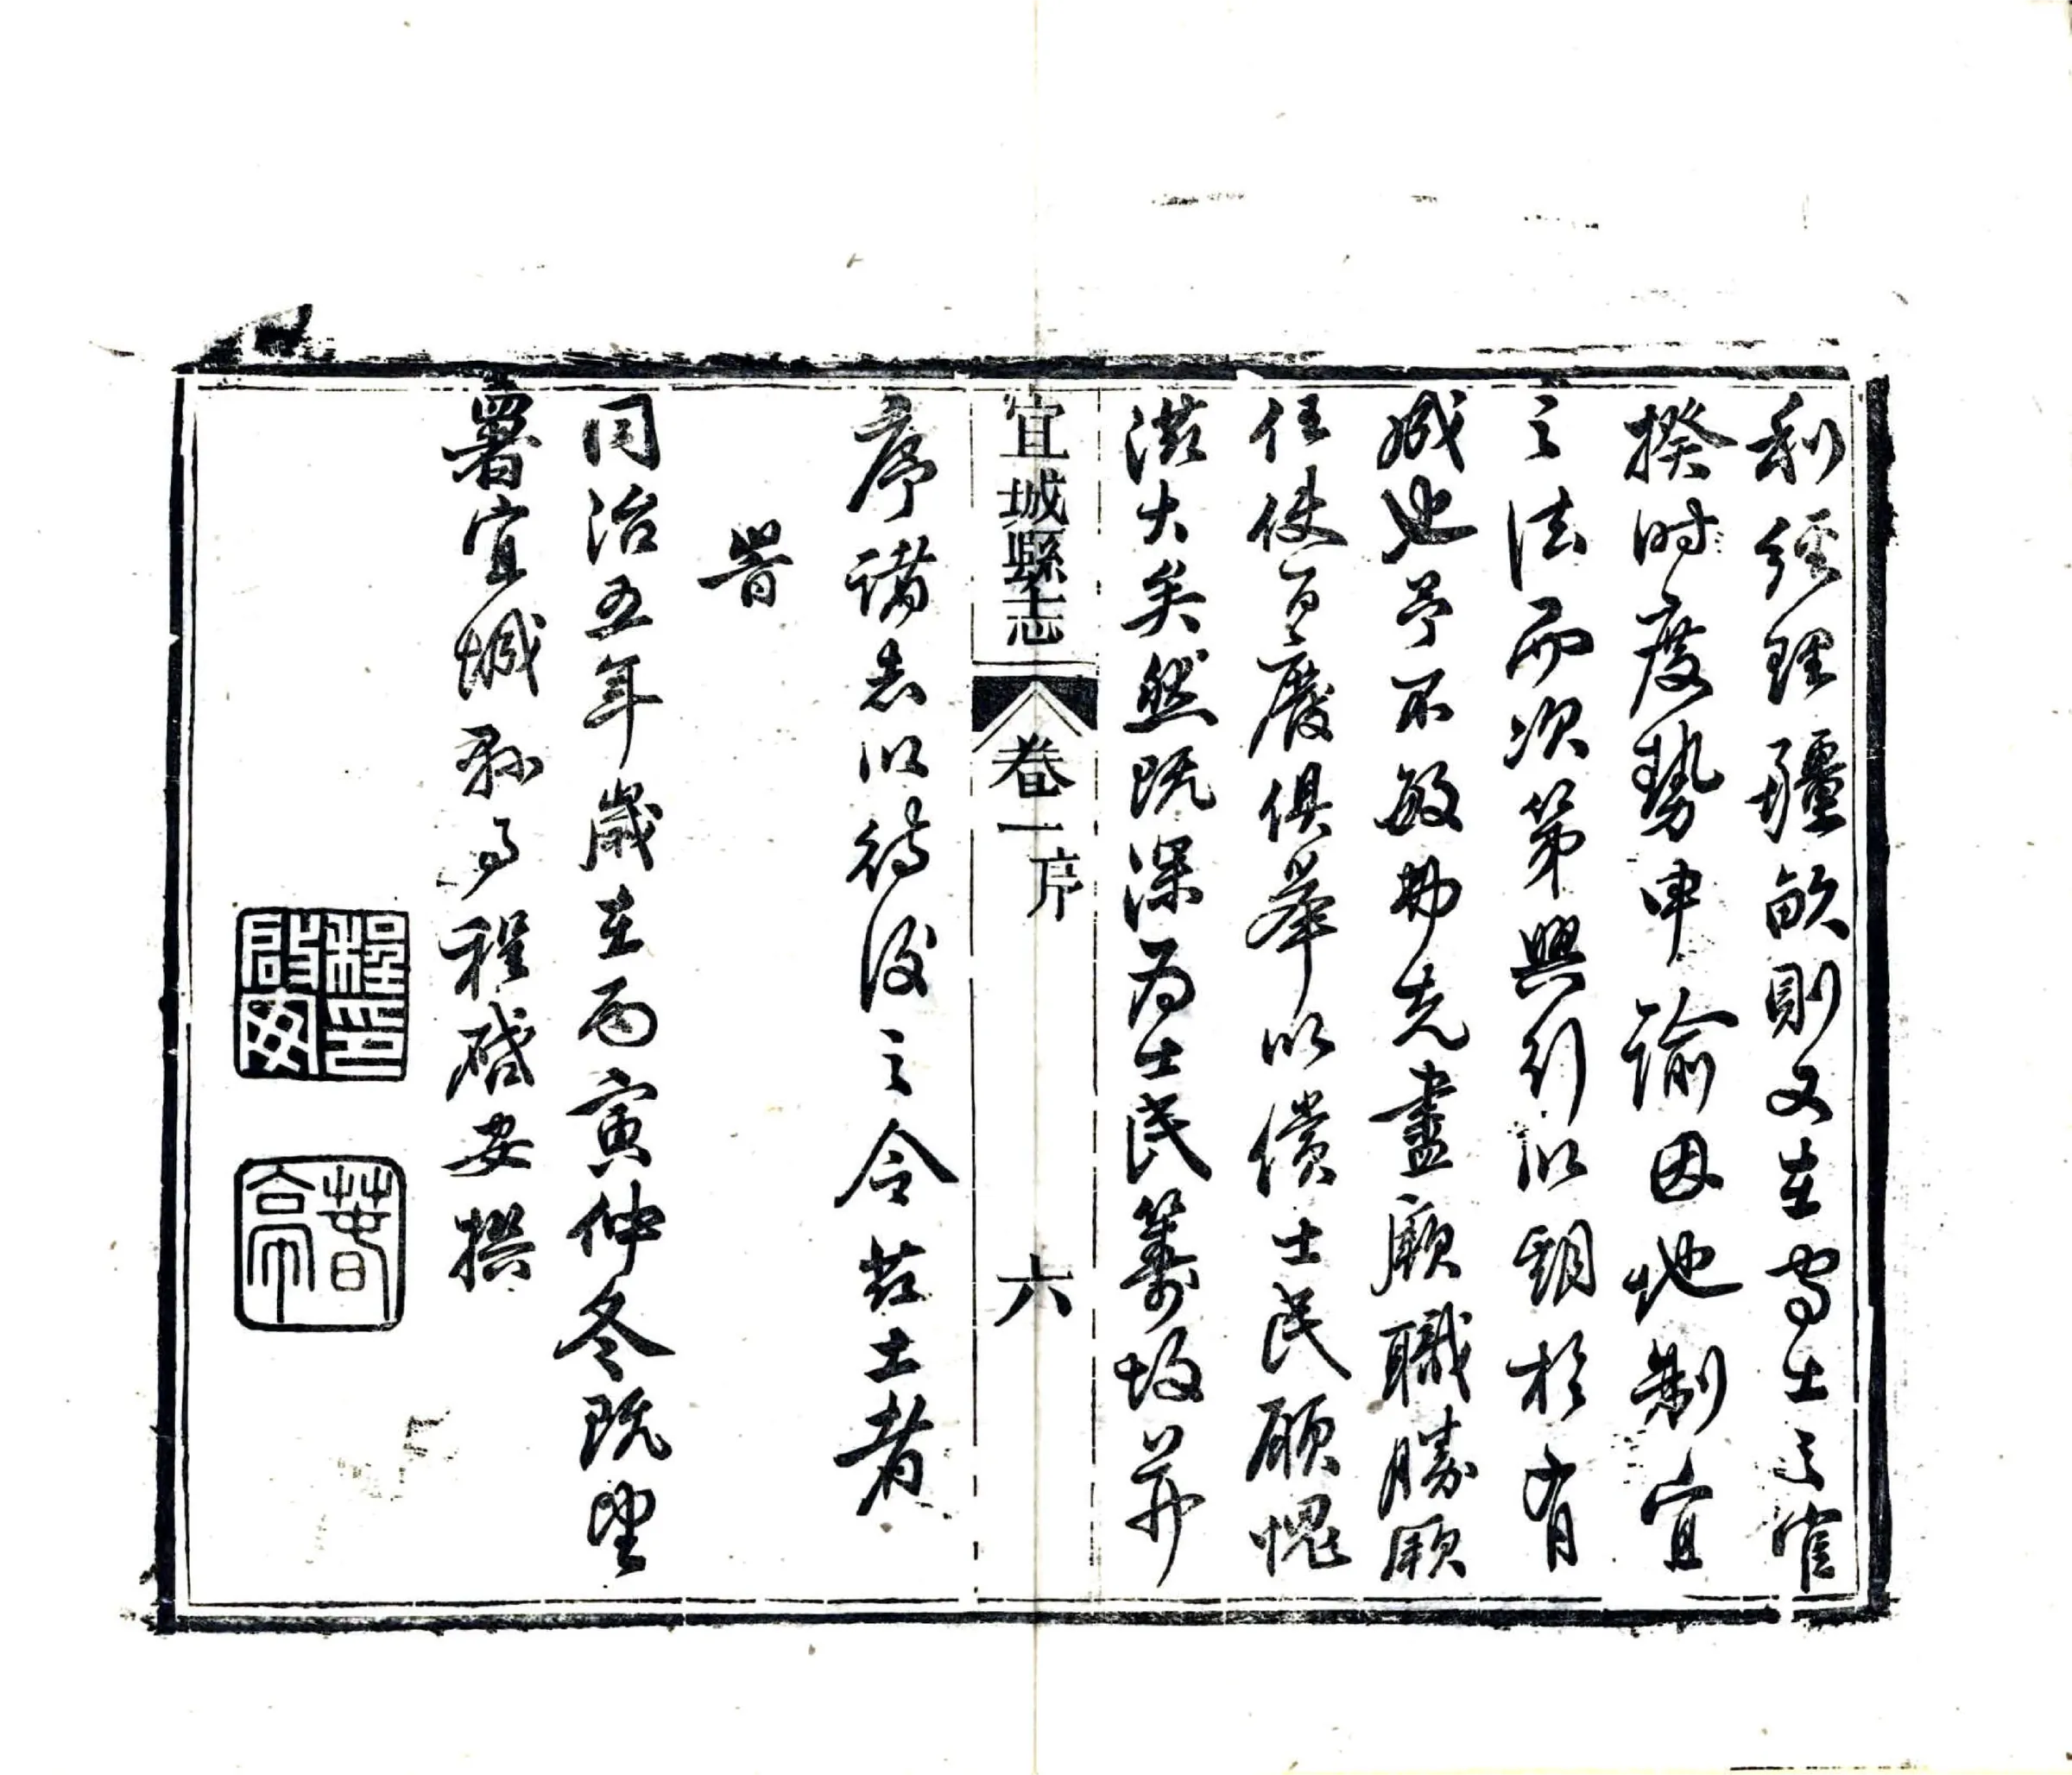 利經理疆畝則又在守土之官
揆時度勢申諭因地制宜
之法而次第興行以期於有
成也予不敏勉先盡厥職勝厥
任使百廢俱舉以償士民願愧
滋大矣然既深為士民籌故并
宜城縣志 卷一 序 六
序諸志以待後之令茲土者
時
同治五年歲在丙寅仲冬既望
署宜城縣事程啟安撰
程啟安印
春亭